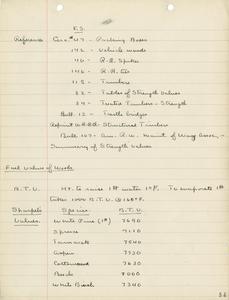 F.S.
Reference Circ. #47 - Packing Boxes
172 - Vehicle woods
146 - R.R. Spikes
146 - R.R. Ties
115 - Timbers
32 - Tables of Strength Values
39 - Treated Timbers - Strength
Bull. 12 - Trestle bridges
Structural Timbers
Bull 107 - Am. R. W. Maint of Way Assoc. -
Summary of Strength values
Fuel Values of Woods
B.T.U. Ht. to raise 1# water 1° F. To evaporate 1#
takes 1000 B.T.U. @ 168° F.
Sharples Species B.T.U.
Values. White Pine (1#) 7690
Spruce 7110
Tamarack 7540
Aspen 7330
Cottonwood 7630
Beech 8000
White Birch 7340